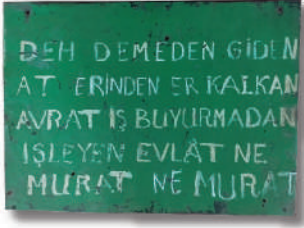 DEH DEMEDEN GİDEN
AT ERİNDEN ER KALKAN
AVRAT İŞ BUYURMADAN
İŞLEYEN EVLÂT NE
MURAT NE MURAT